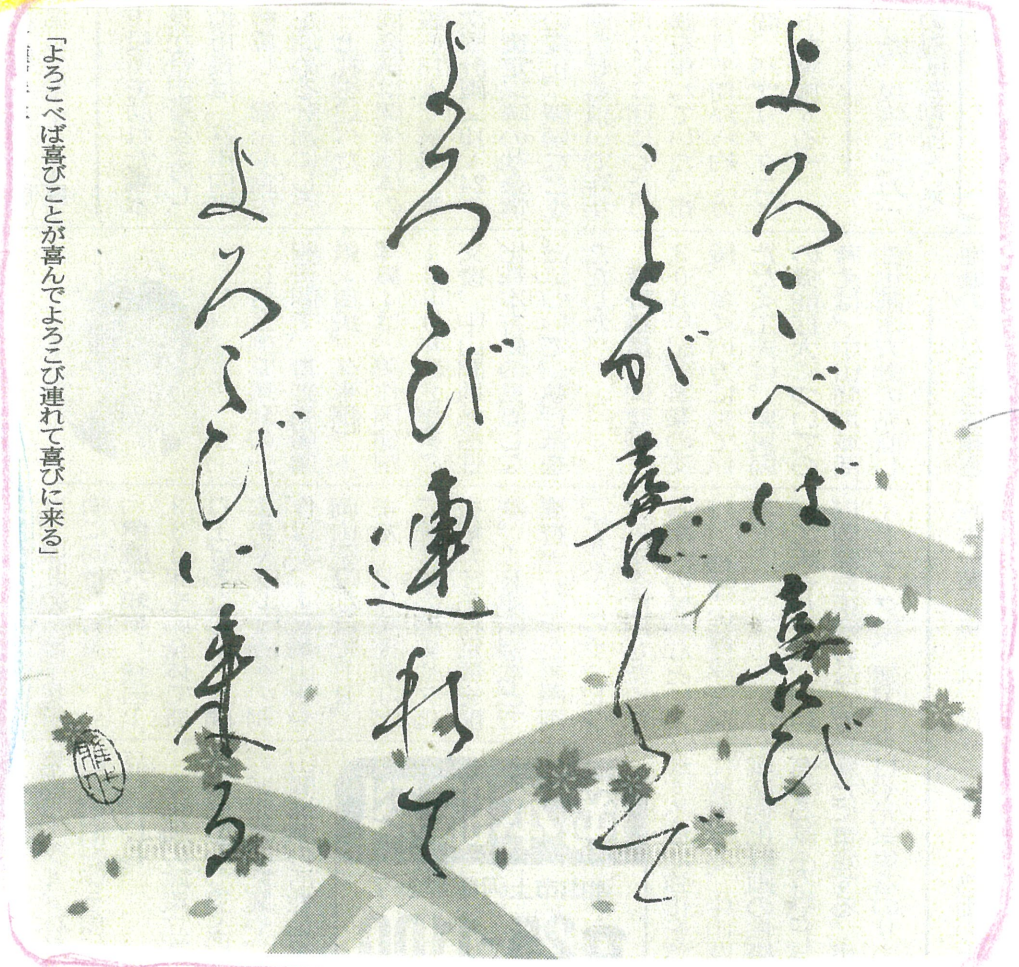 よろこべば喜び
ことが喜んで
よろこび連れて
よろこびに来る
「よろこべば喜びことが喜んでよろこび連れて喜びに来る」